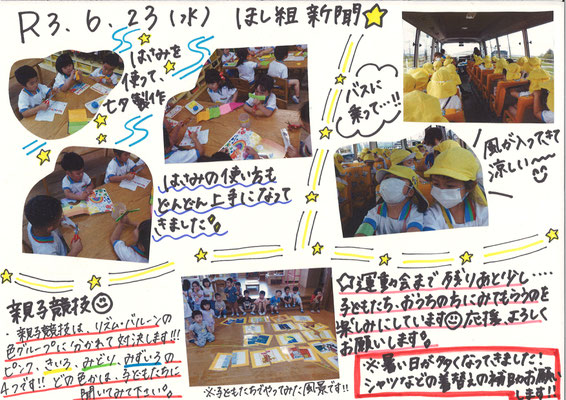 R3.6.23(水) ほし組新聞
はさみを
使って、
七夕製作
はさみの使い方も
どんどん上手になって
きました。
バスに
乗って…!!
風が入ってきて
涼しい〜〜
親子競技
・親子競技は、リズム・バルーンの
色グループに分かれて対決します!!!
ピンク、きいろ、みどり、みずいろの
4つです!! どの色かは、子どもたちに
聞いてみて下さい。
※子どもたちでやってみた風景です!!
☆運動会まで残りあと少し‥‥
子どもたち、おうちの方にみてもらうのを
楽しみにしています 応援、よろしく
お願いします。
※暑い日が多くなってきました!
シャツなどの着替えの補助のお願い
します!!